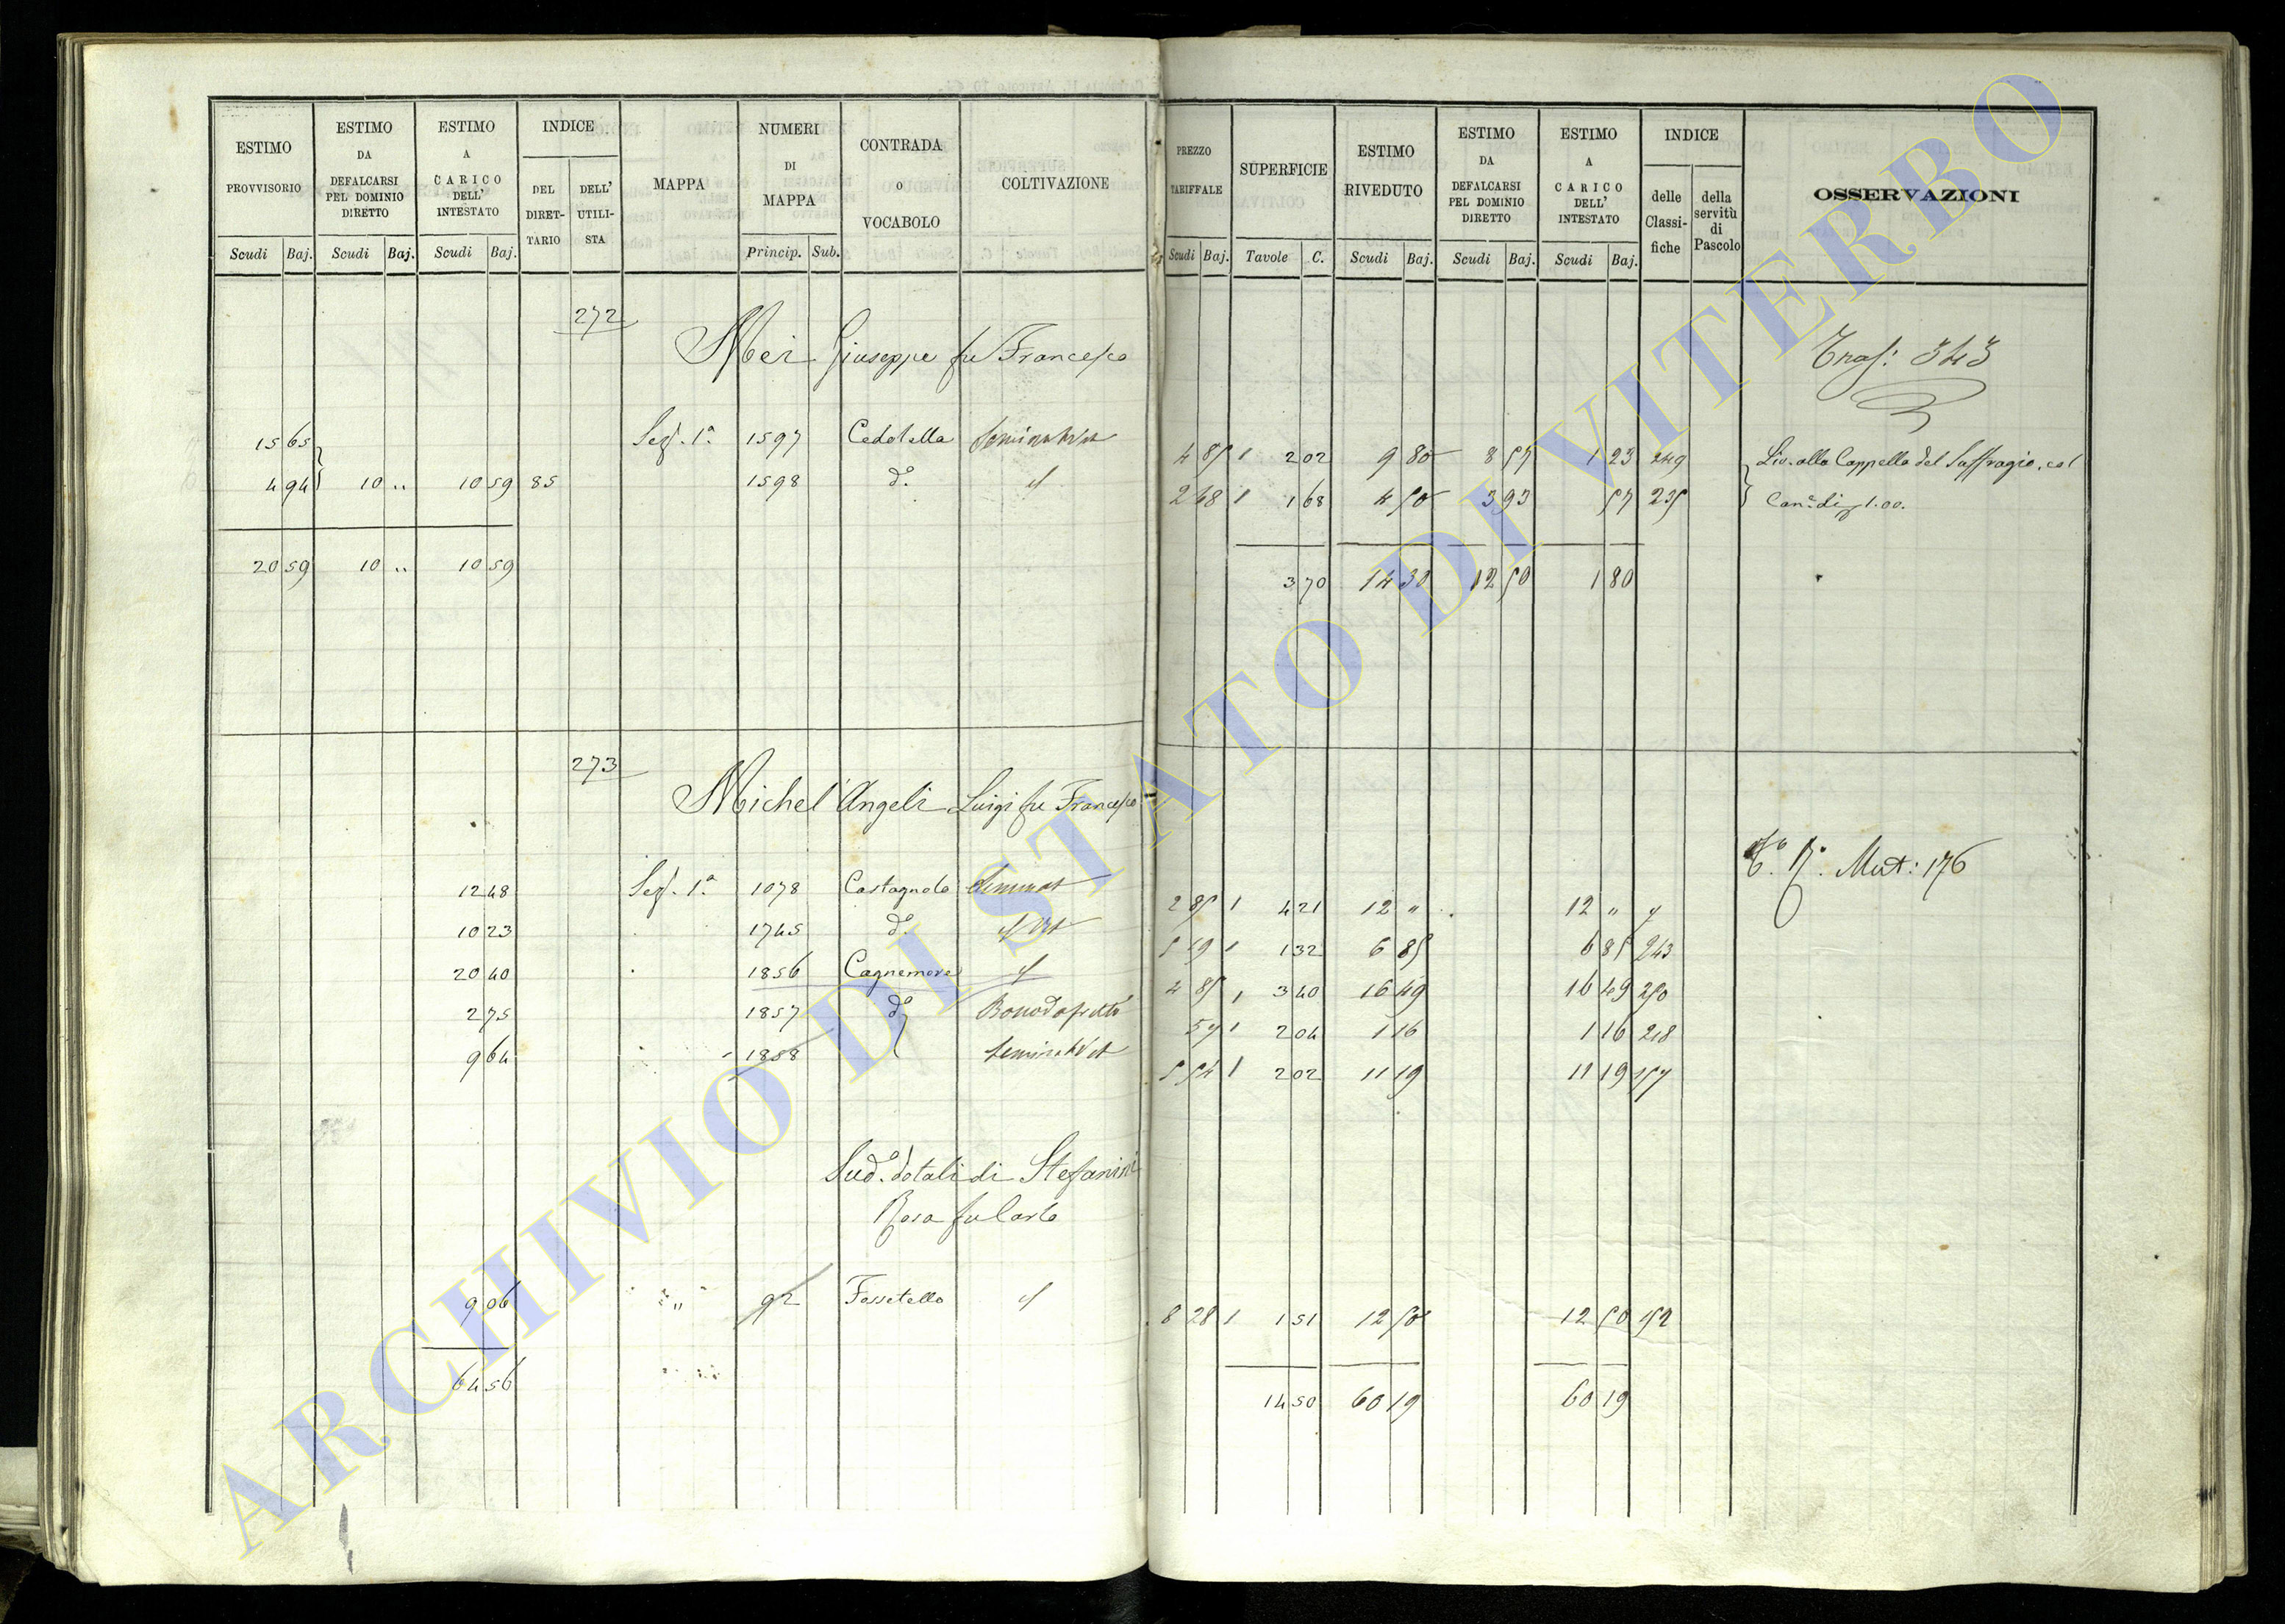 ESTIMO PROVVISORIO Scudi Baj.
ESTIMO DA DEFALCARSI PEL DOMINIO DIRETTO Scudi Baj.
ESTIMO A CARICO DELL' INTESTATO Scudi Baj.
INDICE DEL DIRET- TARIO DELL' UTILI- STA
MAPPA
NUMERI DI MAPPA Princip. Sub.
CONTRADA O VOCABOLO
COLTIVAZIONE
PREZZO TARIFFALE Scudi Baj.
SUPERFICIE Tavole C.
ESTIMO RIVEDUTO Scudi Baj.
ESTIMO DA DEFALCARSI PEL DOMINIO DIRETTO Scudi Baj.
ESTIMO A CARICO DELL' INTESTATO Scudi Baj.
INDICE delle Classi- fiche della servitù di Pascolo
OSSERVAZIONI
272
Mei Giuseppe fu Francesco
Tras: 343
15 65 Sez. 1ª 1597 Cedolella Seminat Vit 4 85 1 2 02 9 80 8 57 1 23 249 Liv. alla Cappella del Suffragio, col
4 94 10 " 10 59 85 1598 dº 2 48 1 1 68 4 50 3 93 57 235 Can: di 1.00.
20 59 10 " 10 59 3 70 14 30 12 50 1 80
273
Michel'Angeli Luigi fu Francesco
Mut: 176
12 48 Sez. 1ª 1078 Castagnola Seminat 2 85 1 4 21 12 " 12 "
10 23 1745 dº Vit 5 19 1 1 32 6 85 6 85 243
20 40 1856 Cagnemora 4 85 1 3 40 16 49 16 49 250
2 75 1857 dº 57 1 2 04 1 16 1 16 218
9 64 1858 Seminat Vit 5 54 1 2 02 11 19 11 19 157
Sudº dotali di Stefanini
Rosa fu Carlo
9 06 " 92 Fossetello 8 28 1 1 51 12 50 12 50 152
64 56 14 50 60 19 60 19
ARCHIVIO DI STATO DI VITERBO